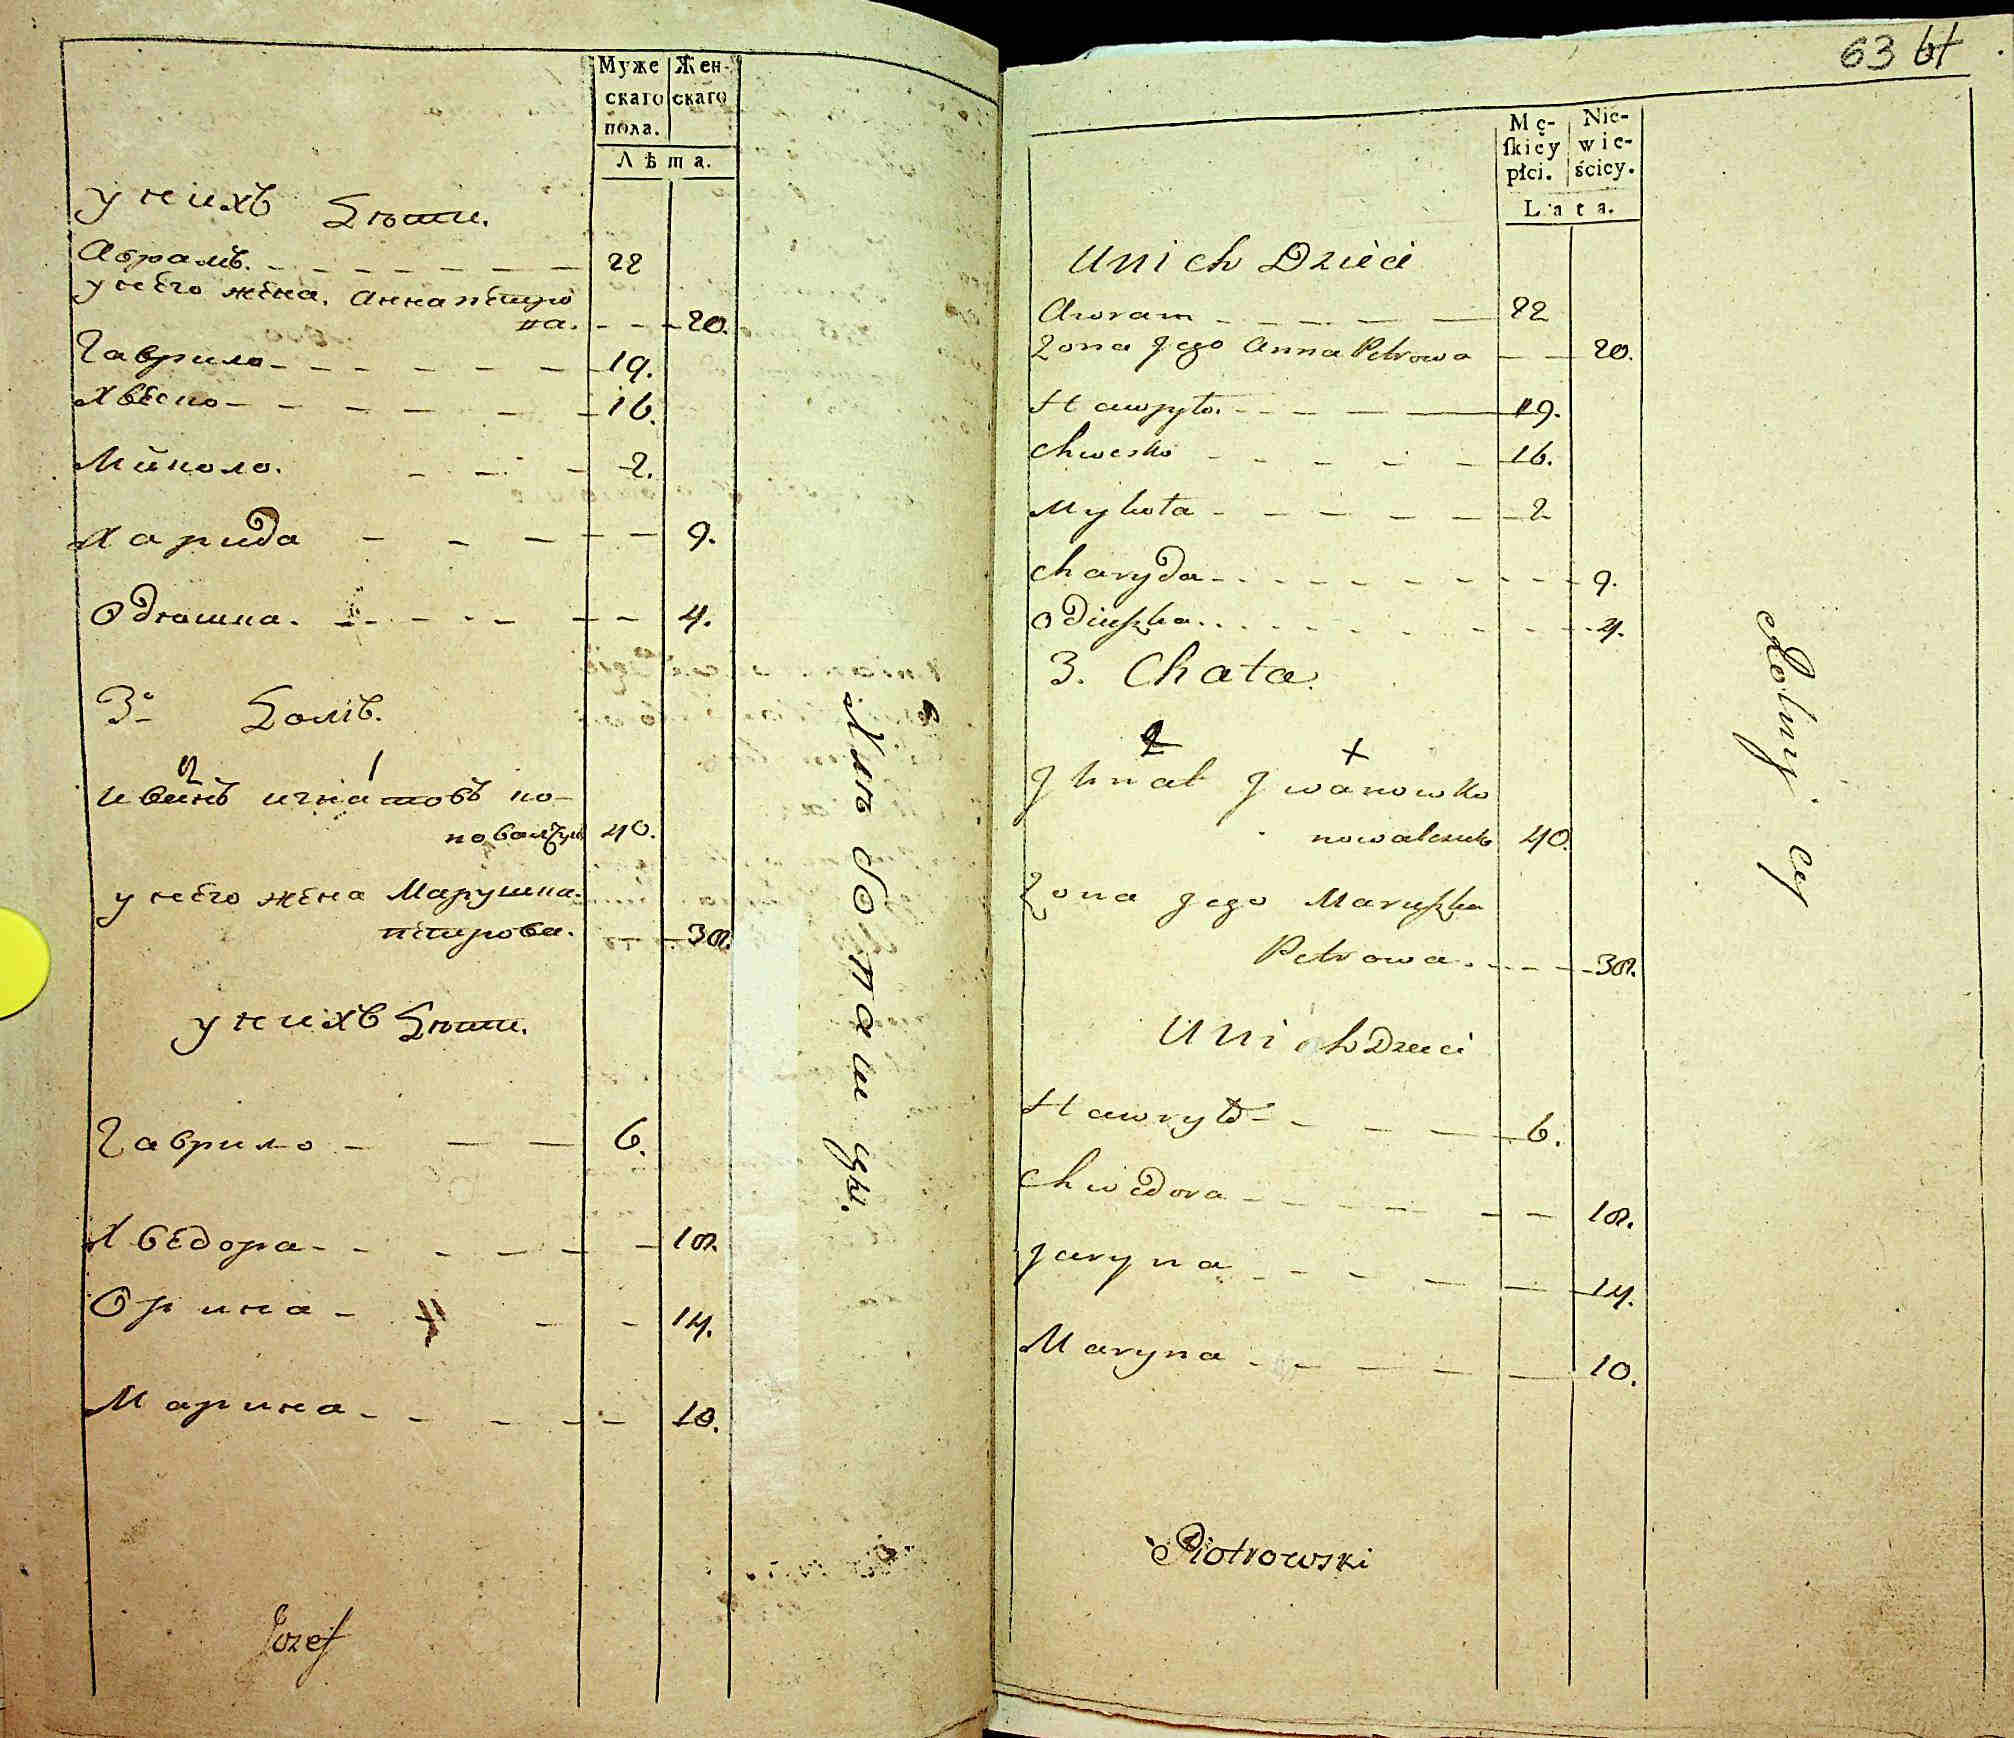 Муже
скаго
пола.
Жен-
скаго
Лѣта.
у нихъ Дѣти.
Абрамъ. 22
у него жена. Анна пétro
ва. 20.
Гаврило 19.
Хвеско 16.
Микола. 2.
Харида 9.
Одюшка. 4.
3º Домъ.
2 1
Иванъ игнатовъ ко-
новалчукъ 40.
у него жена Марушка
петрова. 38.
у нихъ Дѣти.
Гаврило 6.
Хведора 18.
Орина 14.
Марина 10.
Józef
63
Mę-
skiey
płci.
Nie-
wie-
ściey.
Lata.
U nich Dzieci
Awram 22
Zona Jego Anna Petrowa 20.
Hawryło. 19.
Chwesko 16.
Mykoła 2
Charyda 9.
Odiuszka 4.
3. Chata.
2 +
Ihnat Iwanow Ko
nowalczuk 40.
Zona Jego Maruszka
Petrowa. 38.
U nich Dzieci
Hawryło 6.
Chwedora 18.
Jaryna 14.
Maryna 10.
Piotrowski